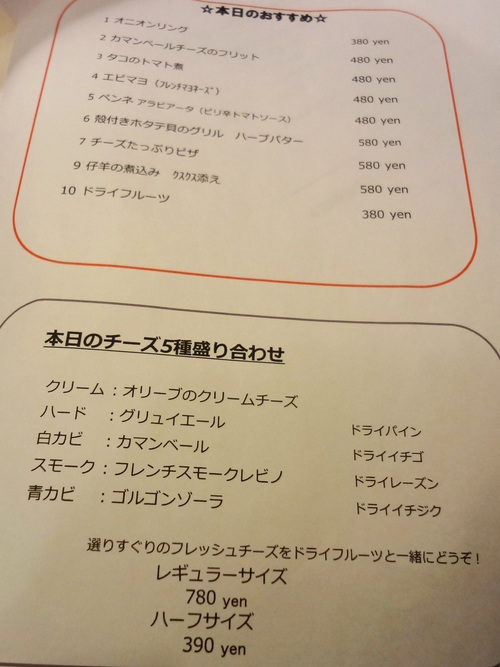 ☆本日のおすすめ☆
1 オニオンリング 380 yen
2 カマンベールチーズのフリット 480 yen
3 タコのトマト煮 480 yen
4 エビマヨ（ﾌﾚﾝﾁﾏﾖﾈｰｽﾞ） 480 yen
5 ペンネ アラビアータ（ピリ辛トマトソース） 480 yen
6 殻付きホタテ貝のグリル ハーブバター 580 yen
7 チーズたっぷりピザ 580 yen
9 仔羊の煮込み ｸｽｸｽ添え 580 yen
10 ドライフルーツ 380 yen
本日のチーズ5種盛り合わせ
クリーム：オリーブのクリームチーズ
ハード ：グリュイエール ドライパイン
白カビ ：カマンベール ドライイチゴ
スモーク：フレンチスモークレビノ ドライレーズン
青カビ ：ゴルゴンゾーラ ドライイチジク
選りすぐりのフレッシュチーズをドライフルーツと一緒にどうぞ！
レギュラーサイズ
780 yen
ハーフサイズ
390 yen